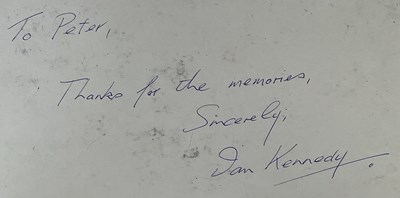 To Peter,
Thanks for the memories,
Sincerely,
Dan Kennedy.